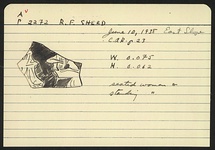 A
P 2272 R.F. SHERD
June 10, 1935 East Slope
W. 0.075
H. 0.062
seated woman &
standing "